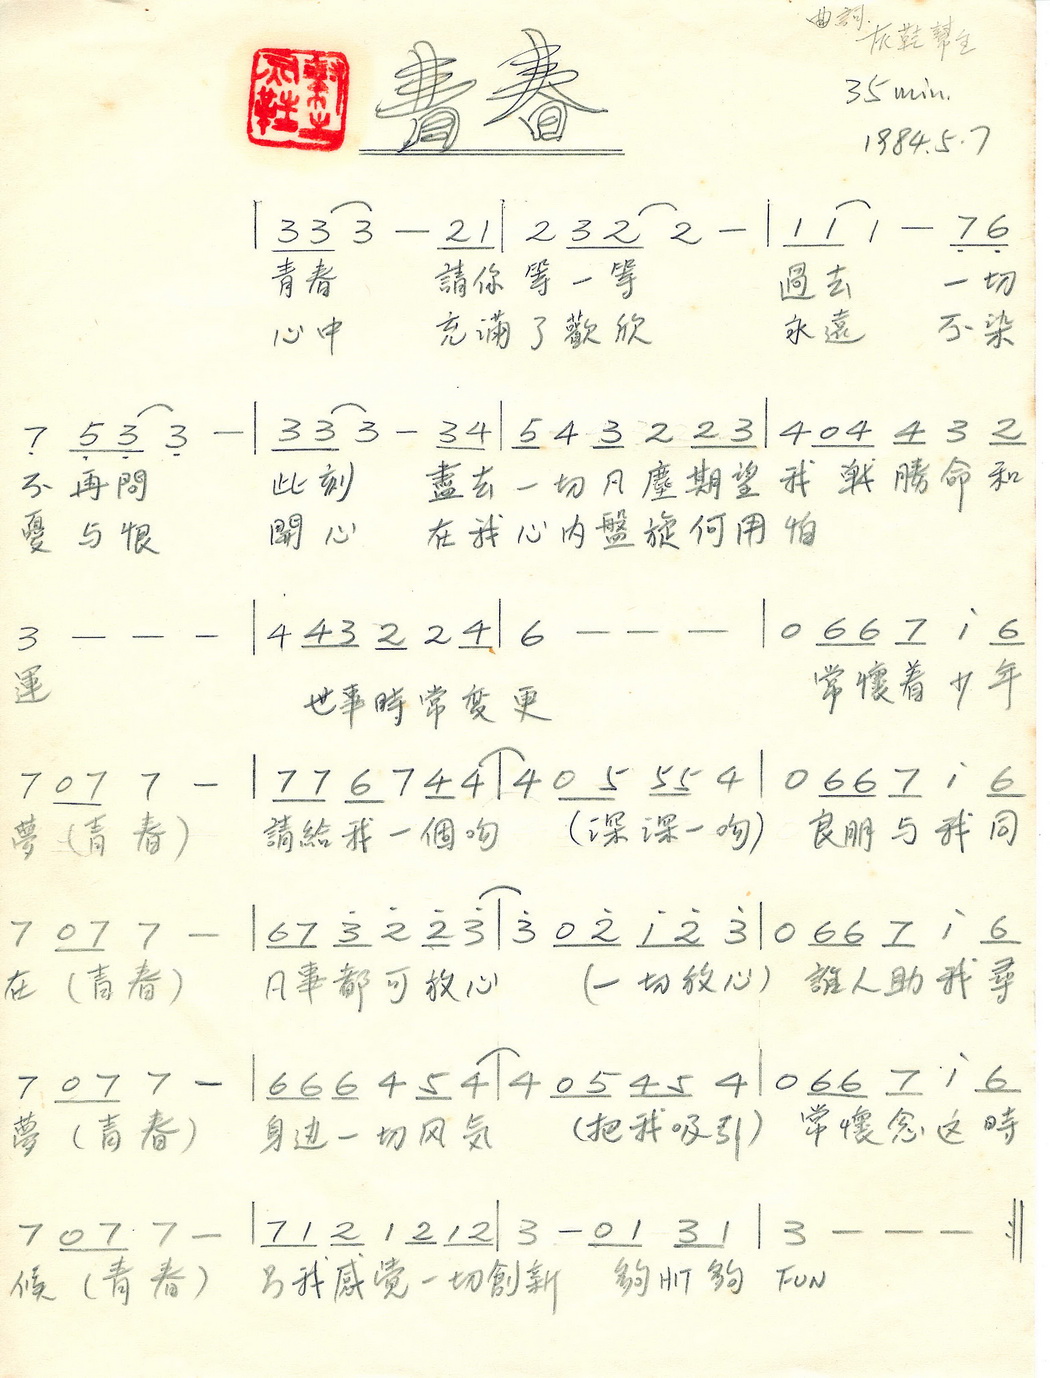 曲詞
灰鞋幫主
青春
35 min.
1984.5.7
| 3 3 3 — 2 1 | 2 3 2 2 — | 1 1 1 — 7 6
青春 請你等一等 過去 一切
心中 充滿了歡欣 永遠 不染
7 5 3 3 — | 3 3 3 — 3 4 | 5 4 3 2 2 3 | 4 0 4 4 3 2
不再問 此刻 盡去一切凡塵期望我 戰勝命和
憂与恨 開心 在我心內盤旋何用怕
3 — — — | 4 4 3 2 2 4 | 6 — — — | 0 6 6 7 i 6
運 世事時常变更 常懷着少年
7 0 7 7 — | 7 7 6 7 4 4 | 4 0 5 5 5 4 | 0 6 6 7 i 6
夢 (青春) 請給我一個吻 (深深一吻) 良朋与我同
7 0 7 7 — | 6 7 3 2 2 3 | 3 0 2 i 2 3 | 0 6 6 7 i 6
在 (青春) 凡事都可放心 (一切放心) 誰人助我尋
7 0 7 7 — | 6 6 6 4 5 4 | 4 0 5 4 5 4 | 0 6 6 7 i 6
夢 (青春) 身边一切风気 (把我吸引) 常懷念这時
7 0 7 7 — | 7 1 2 1 2 1 2 | 3 — 0 1 3 1 | 3 — — — ||
候 (青春) 另我感觉一切創新 夠 HIT 夠 FUN